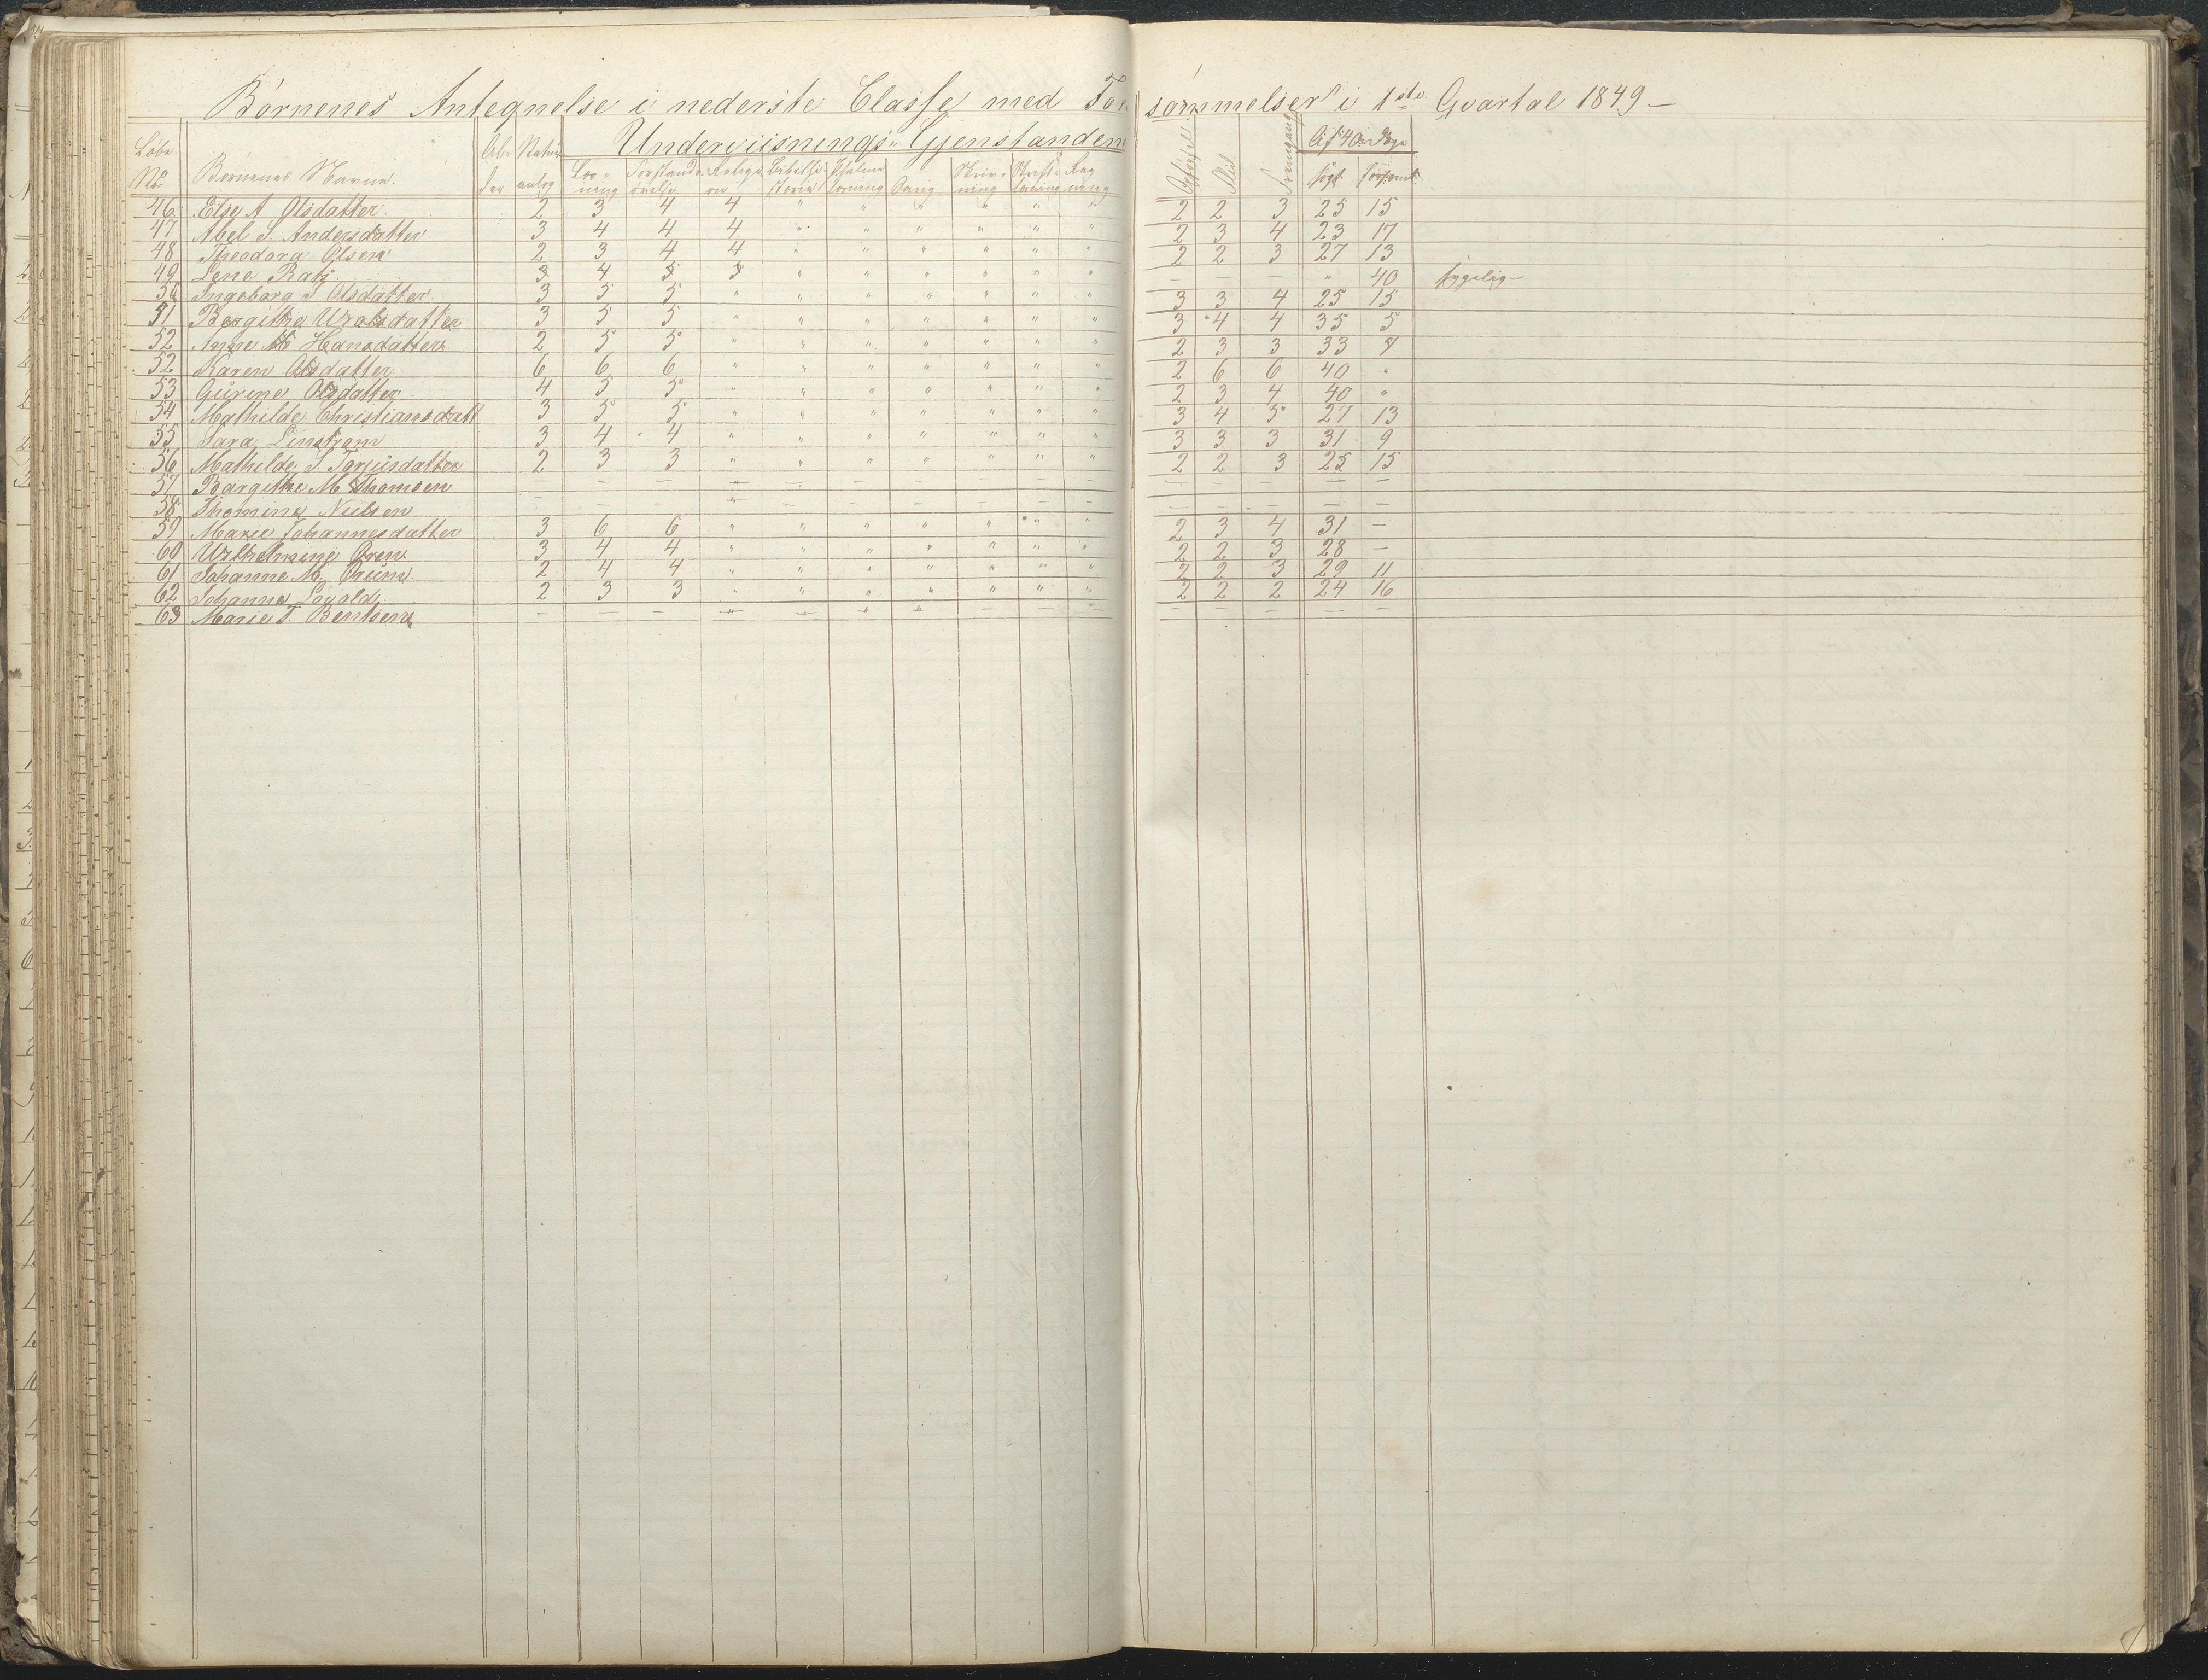 Børnenes Antegnelse i nederste Classe med For sømmelser i 1ste Qvartal 1849 —
Underviisnings-Gjenstandene
Løbe No Børnenes Navne. Al- der Natur anlæg Læs- ning Forstands øvelse Religi- on Bibelhi- storie Psalme Sang Skriv- ning Reg ning Opførsel Flid Fremgang Af 40 Dage søgt forsømt
46 Else A Olsdatter 2 3 4 4 " " " " " " 2 2 3 25 15
47 Abel S. Andersdatter 3 4 4 4 " " " " " " 2 3 4 23 17
48 Theodora Olsen 2 3 4 4 " " " " " " 2 2 3 27 13
49 Lene Ratj 3 4 3 3 " " " " " " — — — " 40 sygelig
50 Ingeborg S Olsdatter 3 5 5 " " " " " " " 3 3 4 25 15
51 Bergithe Uralsdatter 3 5 5 " " " " " " " 3 4 4 35 5
52 Anne M Hansdatter 2 5 5 " " " " " " " 2 3 3 33 7
52 Karen Olsdatter 6 6 6 " " " " " " " 2 6 6 40 "
53 Gurine Olsdatter 4 5 5 " " " " " " " 2 3 4 40 "
54 Mathilde Christiansdatt 3 5 5 " " " " " " " 3 4 5 27 13
55 Sara Linstrøm 3 4 4 " " " " " " " 3 3 3 31 9
56 Mathilde S. Tarjusdatter 2 3 3 " " " " " " " 2 2 3 25 15
57 Bargithe M Thomsen — — — — — — — — — — — — — — —
58 Thomine Nielsen — — — — — — — — — — — — — — —
59 Marie Johannesdatter 3 6 6 " " " " " " " 2 3 4 31 —
60 Wilhelmine Oren 3 4 4 " " " " " " " 2 2 3 28 —
61 Johanne M. Orum 2 4 4 " " " " " " " 2 2 3 29 11
62 Johanne Lovald 2 3 3 " " " " " " " 2 2 2 24 16
63 Marie T. Bentsen — — — — — — — — — — — — — — —